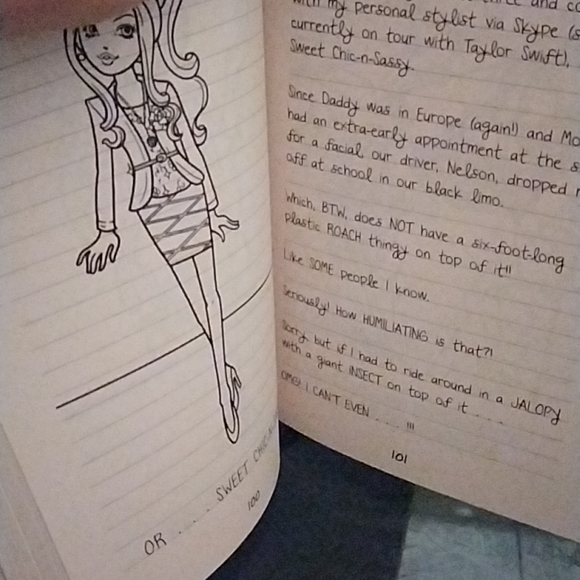 OR .... SWEET CHIC-
100
with my personal stylist via Skype (s
currently on tour with Taylor Swift),
Sweet Chic-n-Sassy.
Since Daddy was in Europe (again!) and Mo
had an extra-early appointment at the s
for a facial our driver, Nelson, dropped
off at school in our black limo.
Which, BTW, does NOT have a six-foot-long
plastic ROACH thingy on top of it!!
Like SOME people I know.
Seriously! How HUMILIATING is that?!
Sorry, but if I had to ride around in a JALOPY
with a giant INSECT on top of it ....
OMG! I CAN'T EVEN ....!!!
101